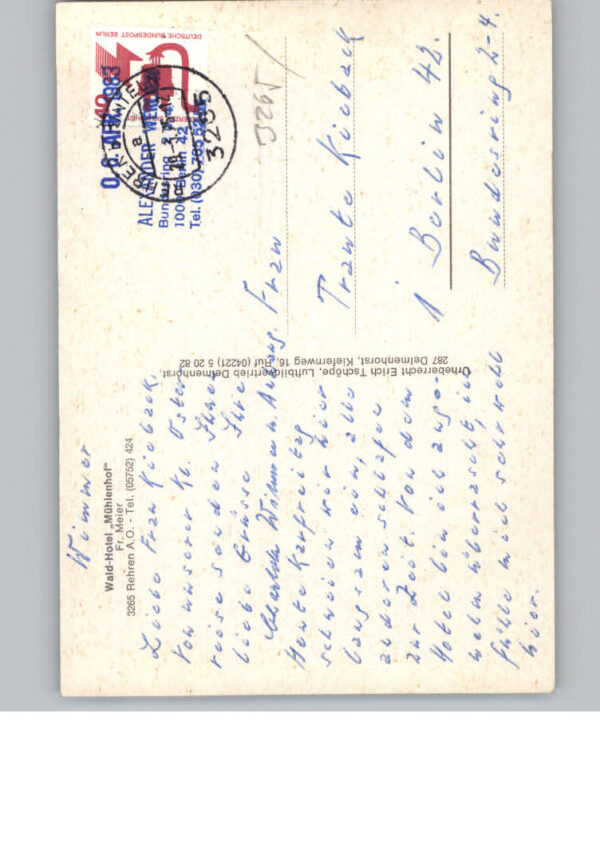 Wimmer
Wald-Hotel „Mühlenhof"
Fr. Meier
3265 Rehren A.O. - Tel. (05752) 424
Liebe Frau Kieback,
Von unserer kl. Oster
reise senden Ihnen
liebe Grüsse Ihre
Charlotte Wimmer u.
Heute Karfreitag
schneien wir hier
langsam ein, alle
anderen schlafen
zur Zeit. Von dem
Hotel bin ich ange-
nehm überrascht, ich
fühle mich sehr wohl
hier.
Urheberrecht Erich Tschöpe, Luftbildvertrieb Delmenhorst
287 Delmenhorst, Kiefernweg 16, Ruf (04221) 5 20 82
DEUTSCHE BUNDESPOST BERLIN
40
1983
ALEXANDER
Bundesring 2
1000 Berlin 42
Tel. (030)
3265
3265
Frau
Traute Kieback
1 Berlin 42.
Bundesring 2-4.